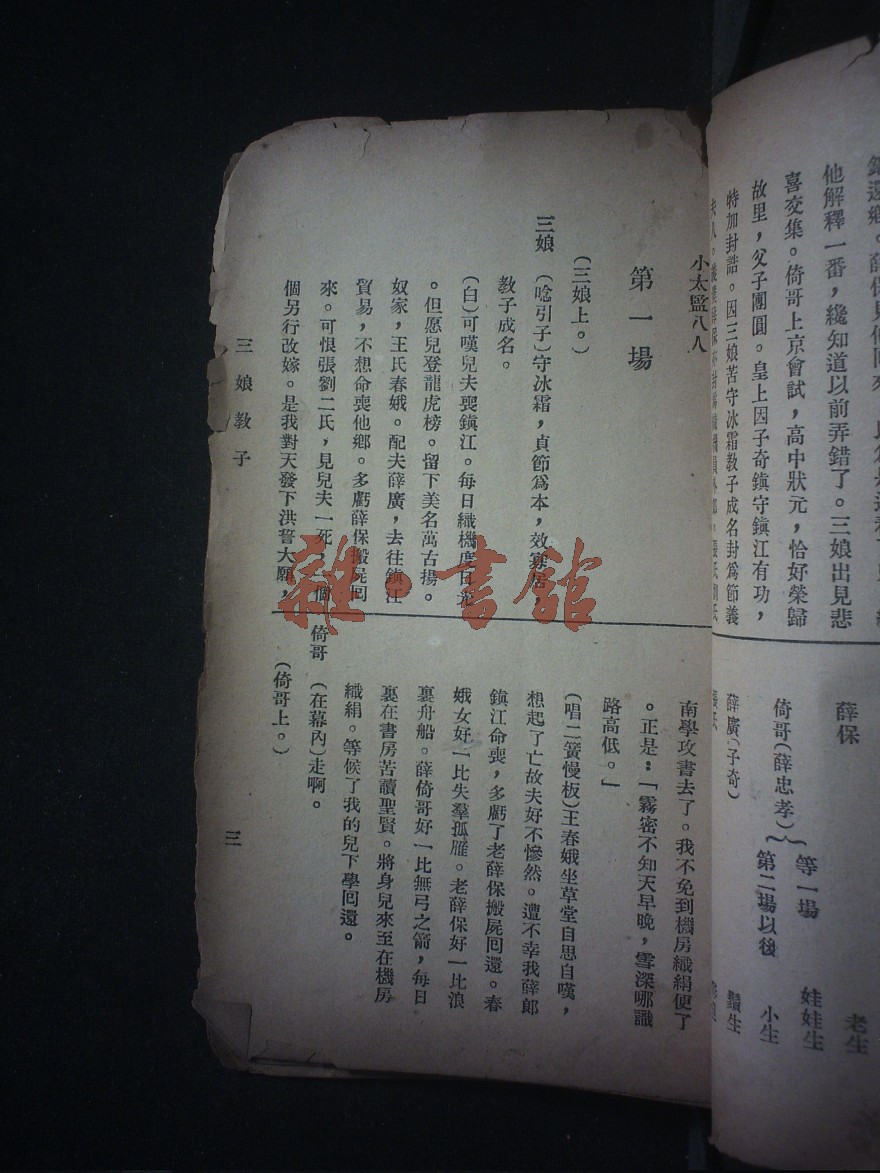 鎮還鄉。薛保見他回來
他解釋一番，纔知道以前弄錯了。三娘出見悲
喜交集。倚哥上京會試，高中狀元，恰好榮歸
故里，父子團圓。皇上因子奇鎮守鎮江有功，
特加封誥。因三娘苦守冰霜教子成名封爲節義
薛保
老生
倚哥(薛忠孝)
等一場
娃娃生
第二場以後
小生
薛廣(子奇)
鬚生
小太監八人
第一場
(三娘上。)
三娘
(唸引子)守冰霜，貞節爲本，效寡居
教子成名。
(白)可嘆兒夫喪鎮江。每日織機度日光
。但愿兒登龍虎榜。留下美名萬古揚。
奴家，王氏春娥。配夫薛廣，去往鎮江
貿易，不想命喪他鄉。多虧薛保搬屍回
來。可恨張劉二氏，見兒夫一死，一個
個另行改嫁。是我對天發下洪誓大願，
南學攻書去了。我不免到機房織絹便了
。正是：「霧密不知天早晚，雪深哪識
路高低。」
(唱二簧慢板)王春娥坐草堂自思自嘆，
想起了亡故夫好不慘然。遭不幸我薛郎
鎮江命喪，多虧了老薛保搬屍回還。春
娥女好一比失羣孤雁。老薛保好一比浪
裏舟船。薛倚哥好一比無弓之箭，每日
裏在書房苦讀聖賢。將身兒來至在機房
織絹。等候了我的兒下學回還。
倚哥
(在幕內)走啊。
(倚哥上。)
三娘教子
三
雜·書館